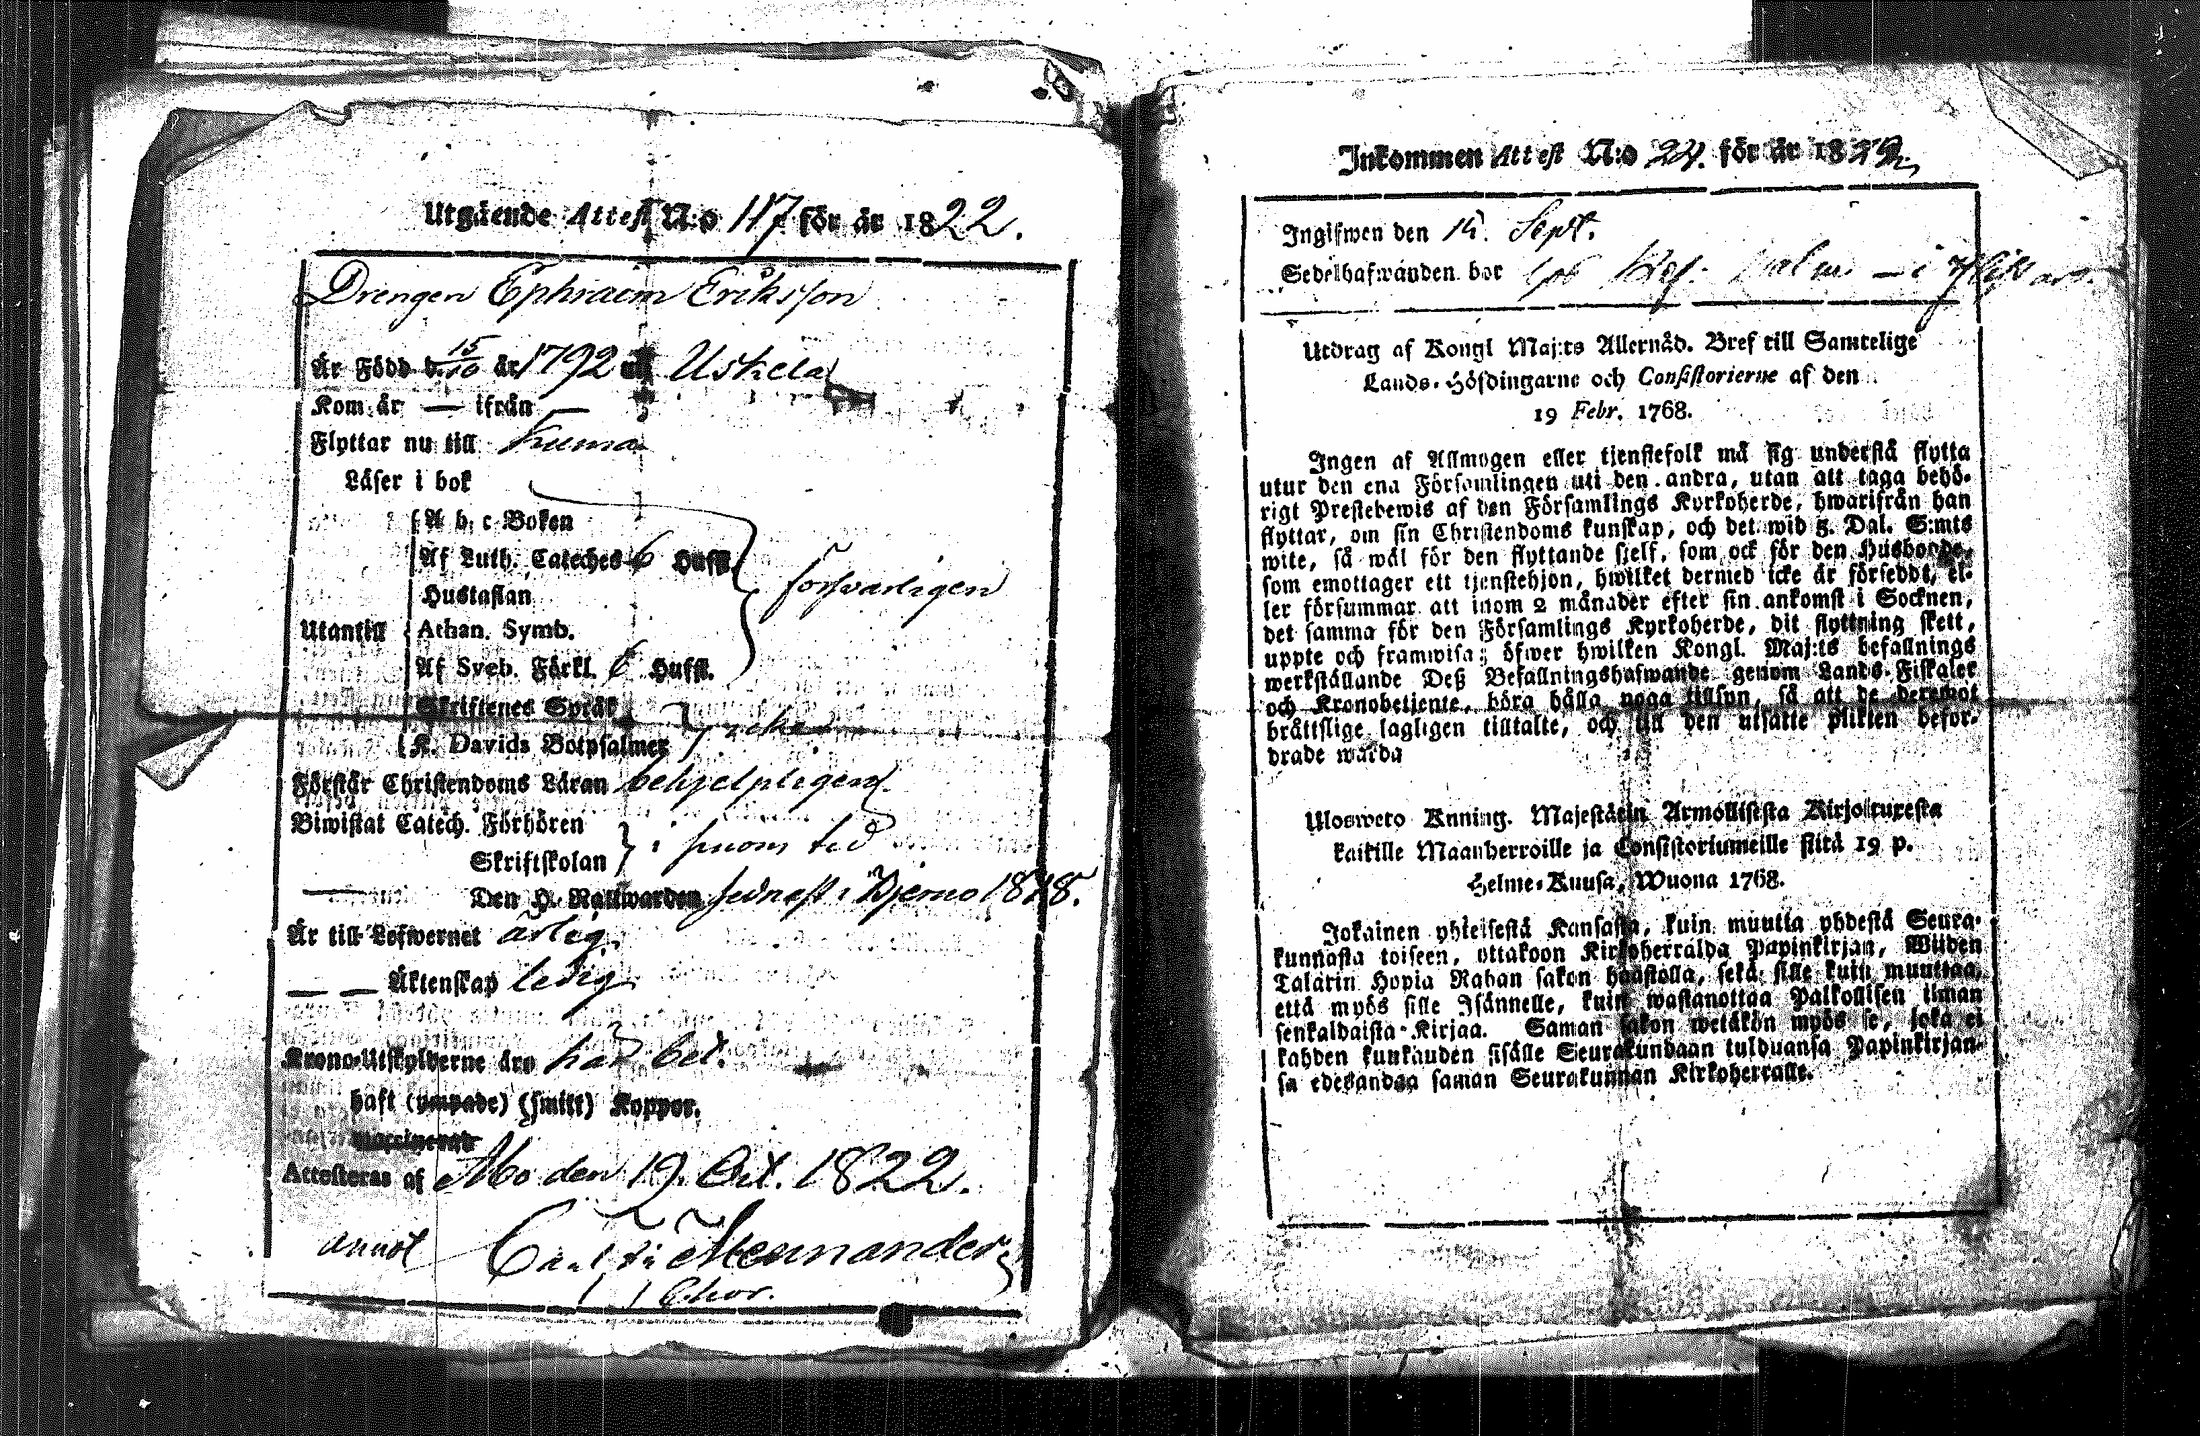 Utgående Attest N:o 117 för år 1822.
Drengen Ephraim Eriksson
Är Född d. 15/10 år 1792 uti Uskela
Kom år — ifrån —
Flyttar nu till
Läser i bok
A b c-Boken
Af Luth. Cateches 6 Hufst.
Hustaflan
försvarligen
Utantill
Athan. Symb.
Af Sveb. Förkl. 6 Hufst.
Skriftenes Språk
K. Davids Botpsalmer
Förstår Christendoms Läran behjelpligen.
Biwistat Catech. Förhören
Skriftskolan
i tid
Den H. Nattwarden sednast i Bjerno
Är till Lefwernet ärlig.
— — Äktenskap ledig.
Krono-Utskylderne äro här bet.
haft (ympade) (smitt) Koppor.
vaccinerad
Attesteras af Åbo den 19. Oct. 1822.
annot Carl Fr. Mennander
Inkommen Attest N:o 24. för år 1822
Ingifwen den 14. Sept.
Sedelhafwanden bor
Utdrag af Kongl Maj:ts Allernåd. Bref till Samtelige
Lands-Höfdingarne och Consistorierne af den
19 Febr. 1768.
Ingen af Allmogen eller tjenstefolk må sig understå flytta
utur den ena Församlingen uti den andra, utan att taga behö-
rigt Prestebewis af den Församlings Kyrkoherde, hwarifrån han
flyttar, om sin Christendoms kunskap, och det wid 3. Dal. S:mts
wite, så wäl för den flyttande sjelf, som ock för den Husbonde,
som emottager ett tjenstehjon, hwilket dermed icke är försedt, el-
ler försummar att inom 2 månader efter sin ankomst i Socknen,
det samma för den Församlings Kyrkoherde, dit flyttning skett,
uppte och framwisa; öfwer hwilken Kongl. Maj:ts befallnings
werkställande Deß Befallningshafwande genom Lands-Fiskaler
och Kronobetjente, böra hålla noga tillsyn, så att de deremot
bråttslige lagligen tilltalte, och till den utsatte plikten befor-
drade warda
Ulosweto Kuning. Majestätin Armollisesta Kirjoituxesta
kaikille Maanherroille ja Consistoriumeille siitä 19 p.
Helme-Kuusa, Wuona 1768.
Jokainen yhteisestä Kansasta, kuin muutta yhdestä Seura-
kunnasta toiseen, ottakoon Kirkoherralda Papinkirjan, Wiiden
Talarin Hopia Rahan sakon haastolla, sekä sille kuin muuttaa,
että myös sille Isännelle, kuin wastanottaa Palkollisen ilman
senkaldaista Kirjaa. Saman sakon wetäkön myös se, joka ei
kahden kuukauden sisälle Seurakundaan tulduansa Papinkirjan-
sa edesandaa saman Seurakunnan Kirkoherralle.